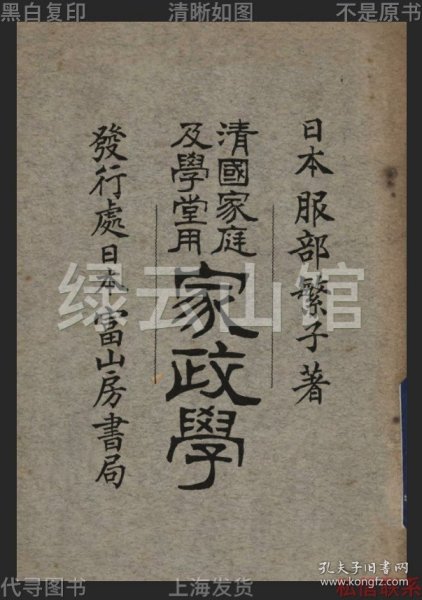 黑白复印
清晰如图
不是原书
日本服部繁子著
清國家庭
及學堂用
家政學
發行處日本冨山房書局
绿云山馆
代寻图书
上海发货
私信联系
孔夫子旧书网
www.kongfz.com